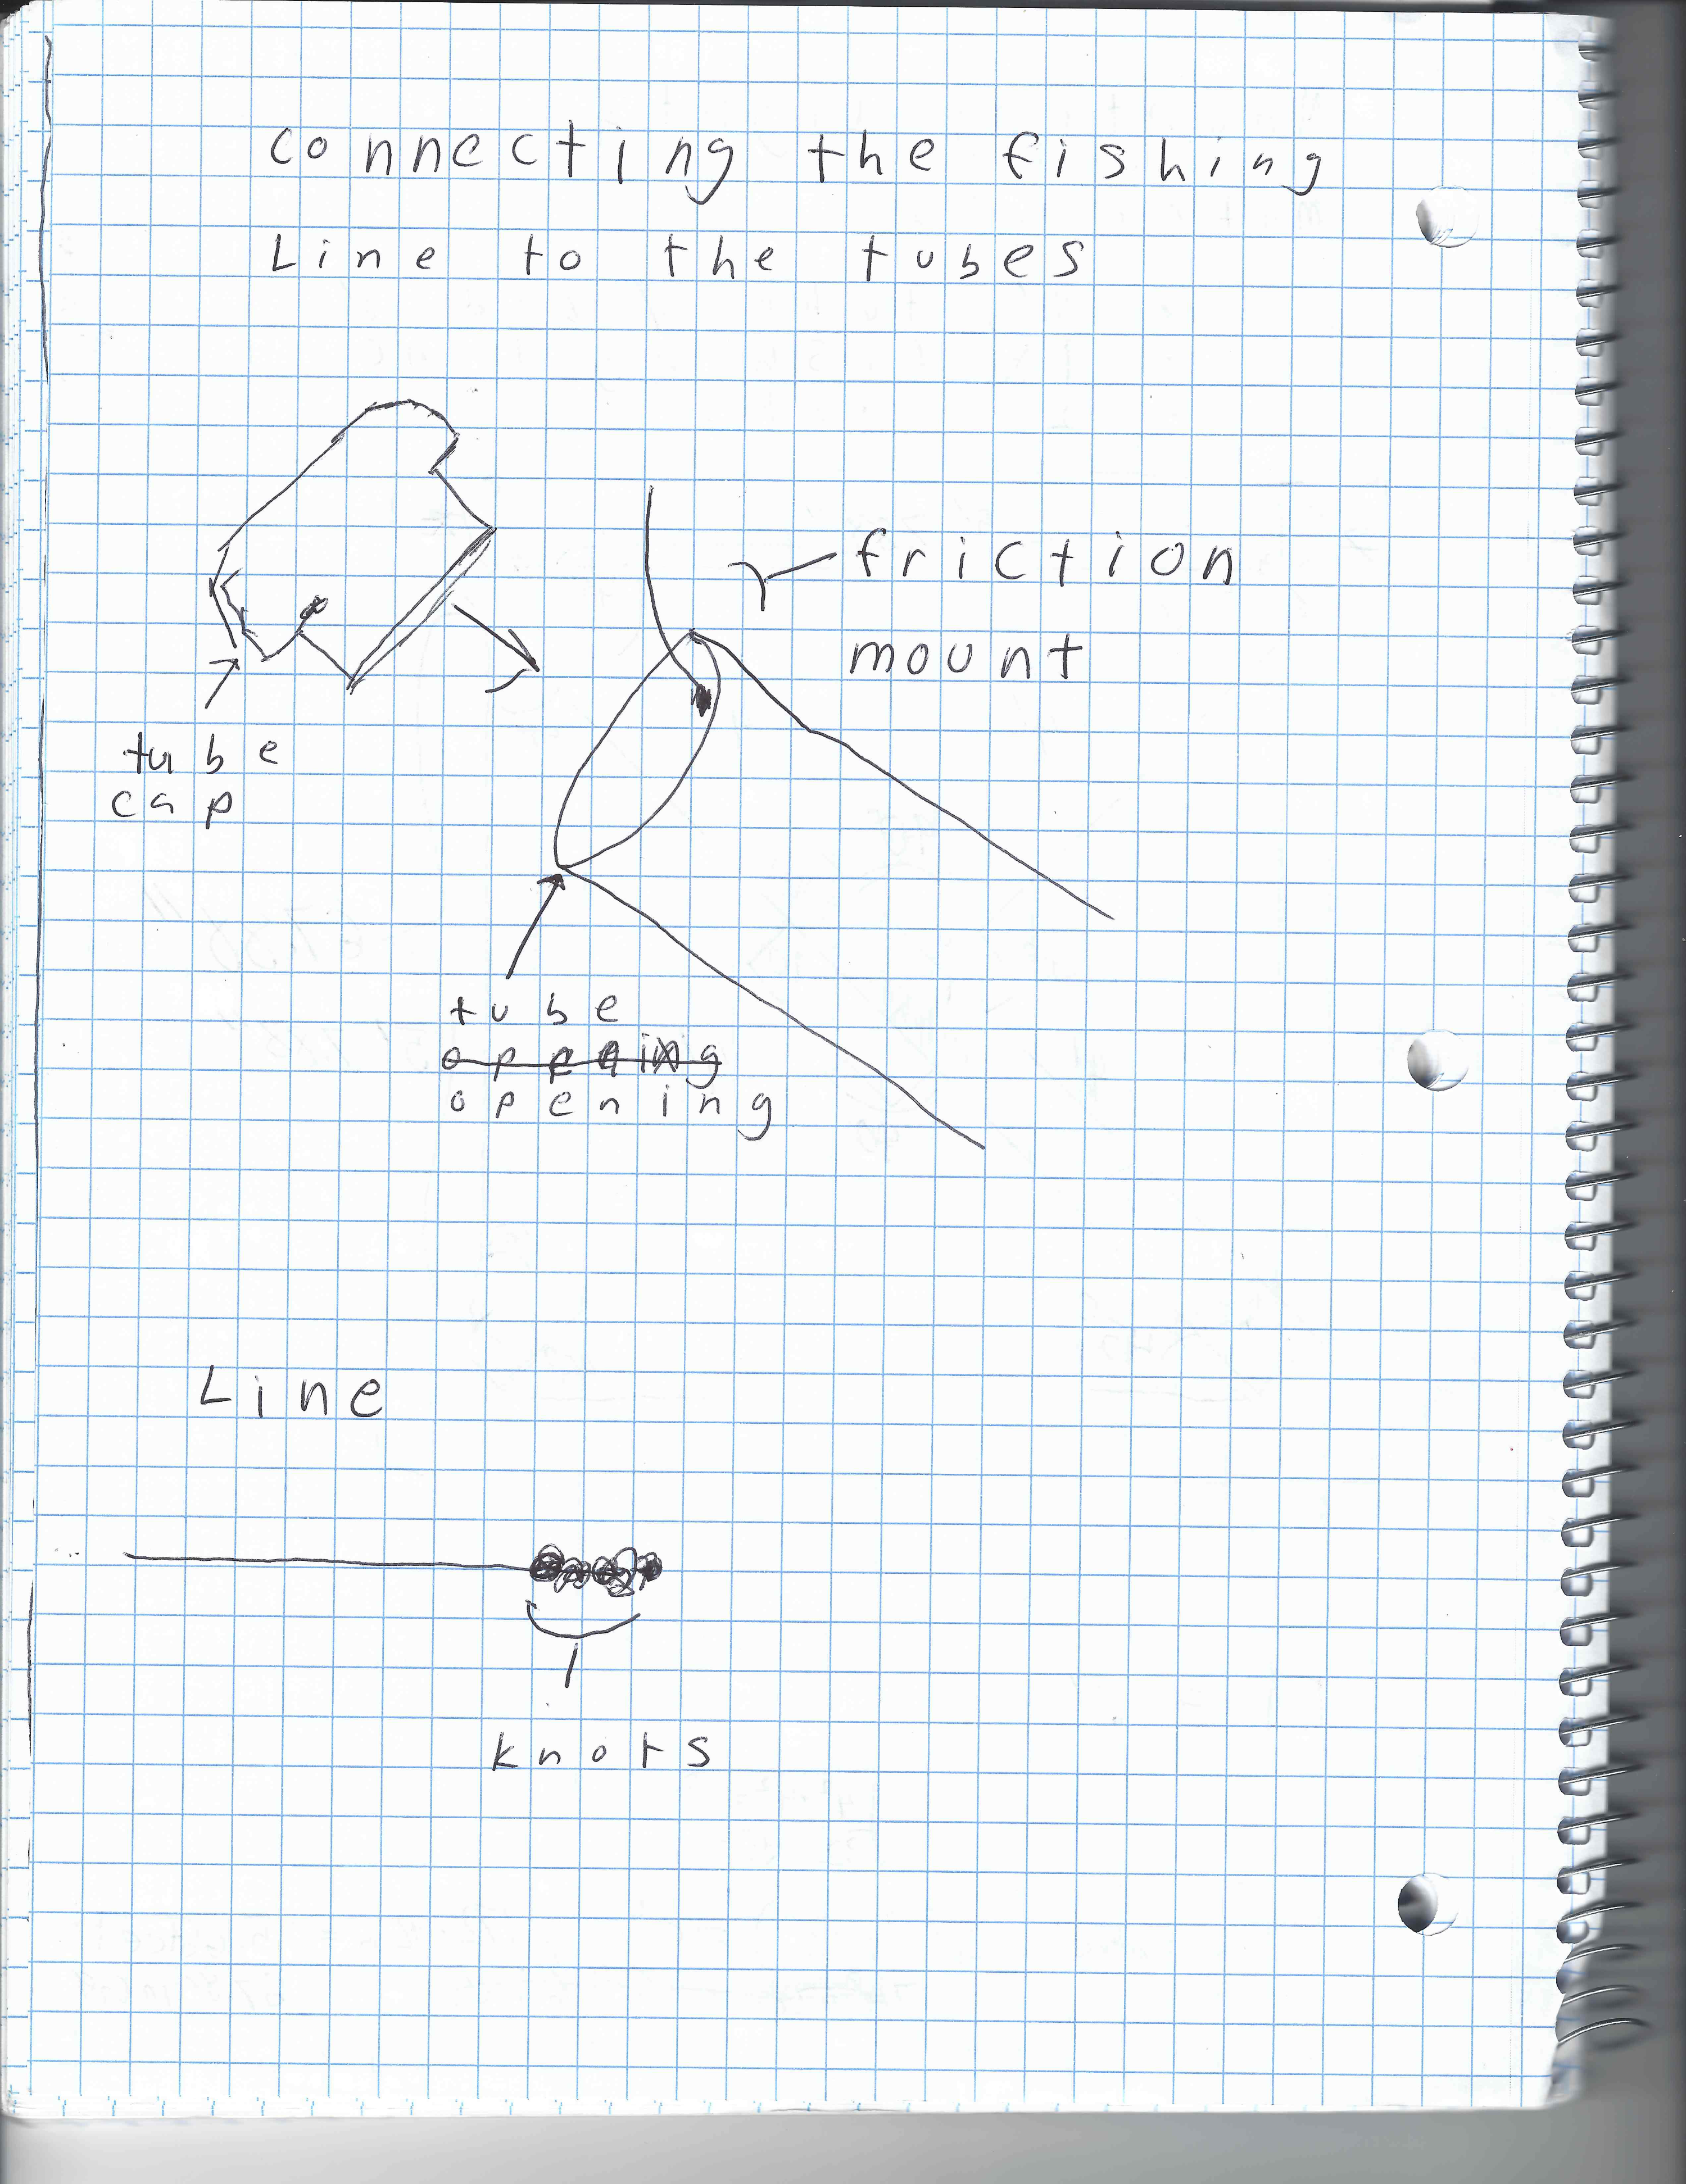 connecting the fishing
Line to the tubes
friction
mount
tube
cap
tube
opening
Line
knots